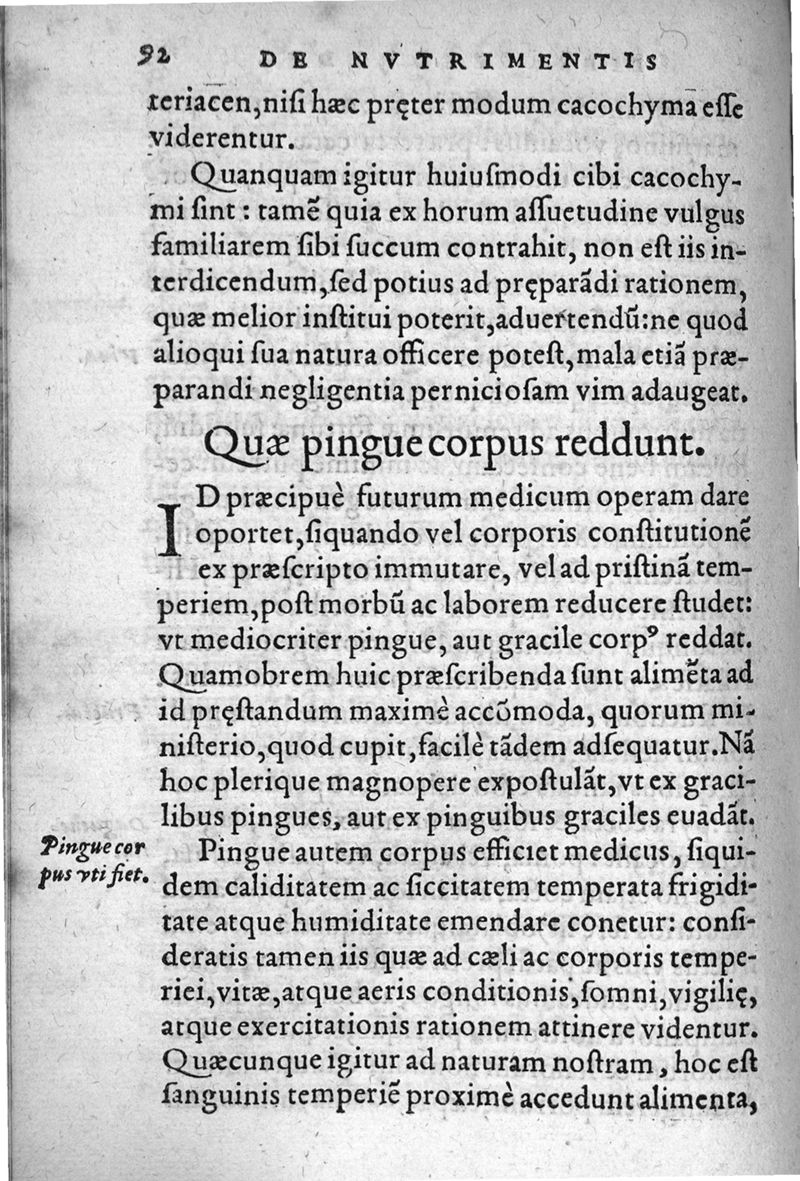 92 DE NVTRIMENTIS
teriacen,niſi hæc pręter modum cacochyma eſſe
viderentur.
Quanquam igitur huiuſmodi cibi cacochy-
mi ſint : tamẽ quia ex horum aſſuetudine vulgus
familiarem ſibi ſuccum contrahit, non eſt iis in-
terdicendum,ſed potius ad pręparãdi rationem,
quæ melior inſtitui poterit,aduertendũ:ne quod
alioqui ſua natura officere poteſt,mala etiã præ-
parandi negligentia pernicioſam vim adaugeat.
Quæ pingue corpus reddunt.
ID præcipuè futurum medicum operam dare
oportet,ſiquando vel corporis conſtitutionẽ
ex præſcripto immutare, vel ad priſtinã tem-
periem,poſt morbũ ac laborem reducere ſtudet:
vt mediocriter pingue, aut gracile corpꝰ reddat.
Quamobrem huic præſcribenda ſunt alimẽta ad
id pręſtandum maximè accõmoda, quorum mi-
niſterio,quod cupit,facilè tãdem adſequatur.Nã
hoc plerique magnopere expoſtulãt,vt ex graci-
libus pingues, aut ex pinguibus graciles euadãt.
Pingue cor
pus vti fiet.
Pingue autem corpus efficiet medicus, ſiqui-
dem caliditatem ac ſiccitatem temperata frigidi-
tate atque humiditate emendare conetur: conſi-
deratis tamen iis quæ ad cæli ac corporis tempe-
riei,vitæ,atque aeris conditionis,ſomni,vigilię,
atque exercitationis rationem attinere videntur.
Quæcunque igitur ad naturam noſtram, hoc eſt
ſanguinis temperiẽ proximè accedunt alimenta,